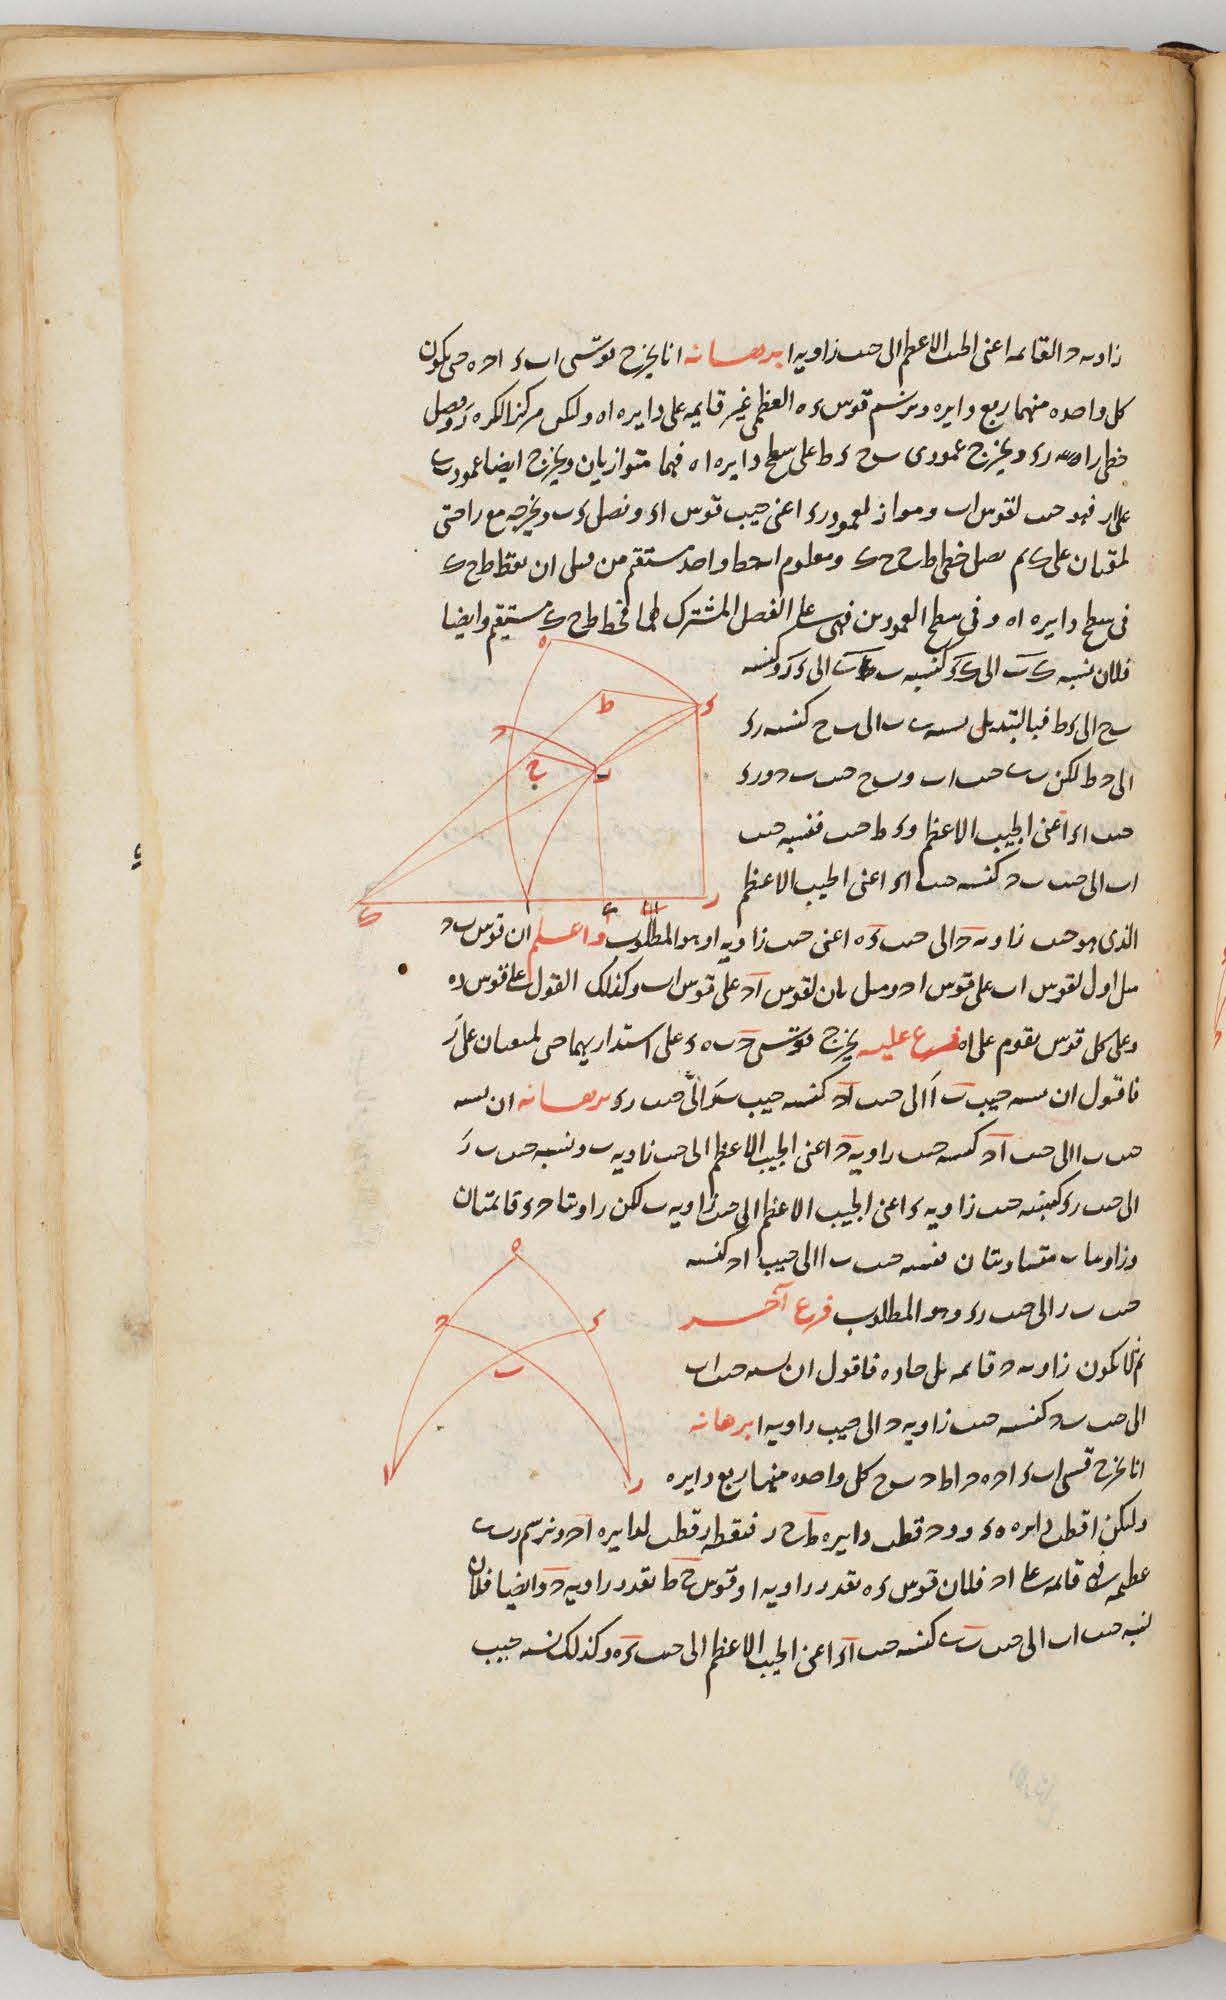 زاويه ح القائمه اعنى الجيب الاعظم الى جيب زاويه ا برهانه انا نخرج قوسى اب ء اح ه حتى يكون
كل واحده منهما ربع دايره ونرسم قوس ء ه العظمى غير قايمه على دايره اه وليكن مركز الكره ر ونصل
خطى را ر ء ونخرج عمودى ب ح ء ط على سطح دايره اه فهما متوازيان ونخرج ايضا عمود ب
على ار فهو جيب لقوس اب ومواز لعمود ر ء اعنى جيب قوس اء ونصل ء ب ونخرجه مع را حتى
يلتقيان على ك ثم نصل خطى ط ح ح ك ومعلوم انهما واحد مستقيم من قبل ان نقط ط ح ك
فى سطح دايره اه وفى سطح العمودين فهى على الفصل المشترك لهما فخط ط ح ك مستقيم وايضا
فلان نسبه ك ب الى ك ء كنسبه ب الى ء ر وكنسبه
ب ح الى ء ط فبالتبديل نسبه ب الى ب ح كنسبه ر ء
الى ء ط لكن ب جيب اب و ب ح جيب ب ح و ر ء
جيب اء اعنى الجيب الاعظم و ء ط جيب فنسبه جيب
اب الى جيب ب ح كنسبه جيب اء اعنى الجيب الاعظم
الذى هو جيب زاويه ح الى جيب ء ه اعنى جيب زاويه ا وهو المطلوب واعلم ان قوس ب ح
ميل اول لقوس اب على قوس اح وميل ثان لقوس اح على قوس اب وكذلك القول على قوس ء ه
وعلى كل قوس يقوم على اه فرع عليه نخرج قوسى ح ب ه ء على استدارتهما حتى يلتقيان على ر
فاقول ان نسبه جيب ب ا الى جيب اح كنسبه جيب ب ر الى جيب ر ء برهانه ان نسبه
جيب ب ا الى جيب اح كنسبه جيب زاويه ح اعنى الجيب الاعظم الى جيب زاويه ب ونسبه جيب ب ر
الى جيب ر ء كنسبه جيب زاويه ء اعنى الجيب الاعظم الى جيب زاويه ب لكن زاويتا ح ء قائمتان
وزاويتا ب متساويتان فنسبه جيب ب ا الى جيب اح كنسبه
جيب ب ر الى جيب ر ء وهو المطلوب فرع آخر
ثم لا تكون زاويه ح قائمه بل حاده فاقول ان نسبه جيب اب
الى جيب ب ح كنسبه جيب زاويه ح الى جيب زاويه ا برهانه
انا نخرج قسى اب ء اح ه ح ا ط ح ب ح كل واحده منها ربع دايره
وليكن ا قطب دايره ه ء و و ح قطب دايره ط ح ر فنقطه ر قطب لدايره اح ونرسم ر ب
عظيمه قائمه على اح فلان قوس ء ه بقدر زاويه ا وقوس ح ط بقدر زاويه ح وايضا فلان
نسبه جيب اب الى جيب ب كنسبه جيب اء اعنى الجيب الاعظم الى جيب ء ه وكذلك نسبه جيب
ه
ط
ء
ح
ب
ح
ك
ا
ر
ه
ح
ء
ب
ا
ر